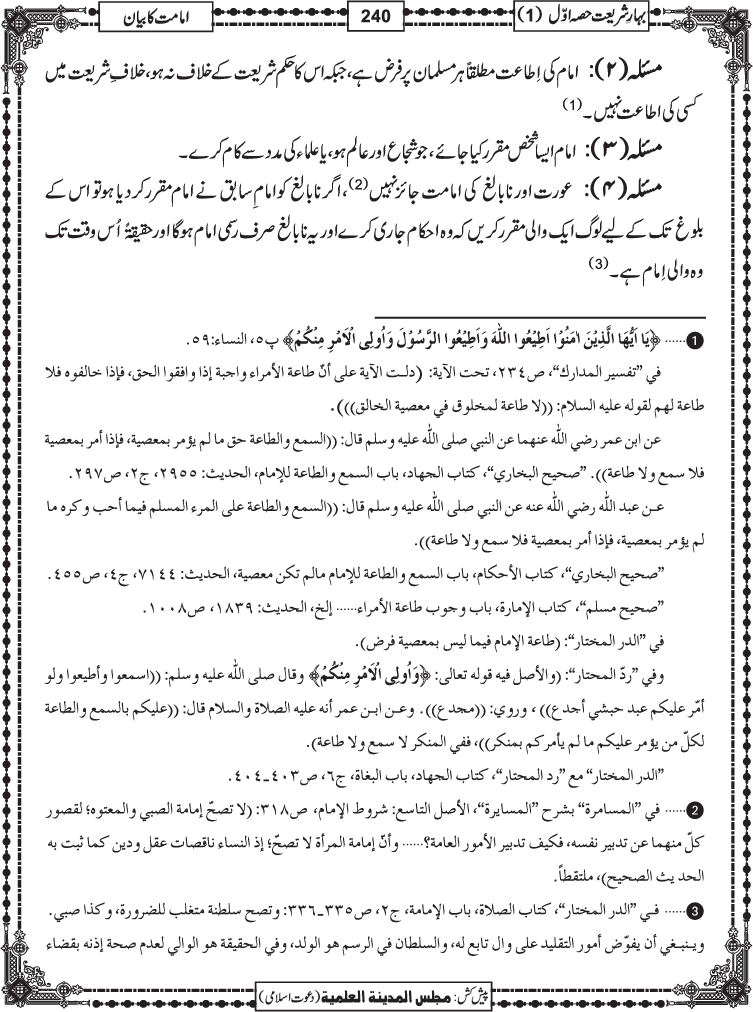 بہارِ شریعت حصہ اوّل (1)
240
امامت کا بیان
مسئلہ (۲): امام کی اِطاعت مطلقاً ہر مسلمان پر فرض ہے، جبکہ اس کا حکم شریعت کے خلاف نہ ہو، خلافِ شریعت میں
کسی کی اطاعت نہیں۔(1)
مسئلہ (۳): امام ایسا شخص مقرر کیا جائے، جو شجاع اور عالم ہو، یا علماء کی مدد سے کام کرے۔
مسئلہ (۴): عورت اور نابالغ کی امامت جائز نہیں(2)، اگر نابالغ کو امامِ سابق نے امام مقرر کر دیا ہو تو اس کے
بلوغ تک کے لیے لوگ ایک والی مقرر کریں کہ وہ احکام جاری کرے اور یہ نابالغ صرف رسمی امام ہوگا اور حقیقۃً اُس وقت تک
وہ والی اِمام ہے۔(3)
1 ...... ﴿يٰۤاَيُّهَا الَّذِيْنَ اٰمَنُوْۤا اَطِيْعُوا اللّٰهَ وَاَطِيْعُوا الرَّسُوْلَ وَاُولِي الْاَمْرِ مِنْكُمْ﴾ پ٥، النساء:٥٩.
في ”تفسير المدارك“، ص٢٣٤، تحت الآية: (دلـت الآية على أنّ طاعة الأمراء واجبة إذا وافقوا الحق، فإذا خالفوه فلا
طاعة لهم لقوله عليه السلام: ((لا طاعة لمخلوق في معصية الخالق))).
عن ابن عمر رضي الله عنهما عن النبي صلى الله عليه وسلم قال: ((السمع والطاعة حق ما لم يؤمر بمعصية، فإذا أمر بمعصية
فلا سمع ولا طاعة)). ”صحيح البخاري“، كتاب الجهاد، باب السمع والطاعة للإمام، الحديث: ٢٩٥٥، ج٢، ص٢٩٧.
عـن عبد الله رضي الله عنه عن النبي صلى الله عليه وسلم قال: ((السمع والطاعة على المرء المسلم فيما أحب وكره ما
لم يؤمر بمعصية، فإذا أمر بمعصية فلا سمع ولا طاعة)).
”صحيح البخاري“، كتاب الأحكام، باب السمع والطاعة للإمام مالم تكن معصية، الحديث: ٧١٤٤، ج٤، ص٤٥٥.
”صحيح مسلم“، كتاب الإمارة، باب وجوب طاعة الأمراء...... إلخ، الحديث: ١٨٣٩، ص١٠٠٨.
في ”الدر المختار“: (طاعة الإمام فيما ليس بمعصية فرض).
وفي ”ردّ المحتار“: (والأصل فيه قوله تعالى: ﴿وَاُولِي الْاَمْرِ مِنْكُمْ﴾ وقال صلى الله عليه وسلم: ((اسمعوا وأطيعوا ولو
أمّر عليكم عبد حبشي أجدع))، وروي: ((مجدع)). وعـن ابـن عمر أنه عليه الصلاة والسلام قال: ((عليكم بالسمع والطاعة
لكلّ من يؤمر عليكم ما لم يأمركم بمنكر))، ففي المنكر لا سمع ولا طاعة).
”الدر المختار“ مع ”رد المحتار“، كتاب الجهاد، باب البغاة، ج٦، ص٤٠٣ـ٤٠٤.
2 ...... في ”المسامرة“ بشرح ”المسايرة“، الأصل التاسع: شروط الإمام، ص٣١٨: (لا تصحّ إمامة الصبي والمعتوه؛ لقصور
كلّ منهما عن تدبير نفسه، فكيف تدبير الأمور العامة؟...... وأنّ إمامة المرأة لا تصحّ؛ إذ النساء ناقصات عقل ودين كما ثبت به
الحديث الصحيح)، ملتقطاً.
3 ...... فـي ”الدر المختار“، كتاب الصلاة، باب الإمامة، ج٢، ص٣٣٥ـ٣٣٦: وتصح سلطنة متغلب للضرورة، وكذا صبي.
وينـبـغي أن يفوّض أمور التقليد على وال تابع له، والسلطان في الرسم هو الولد، وفي الحقيقة هو الوالي لعدم صحة إذنه بقضاء
پیش کش: مجلس المدينة العلمية (دعوت اسلامی)